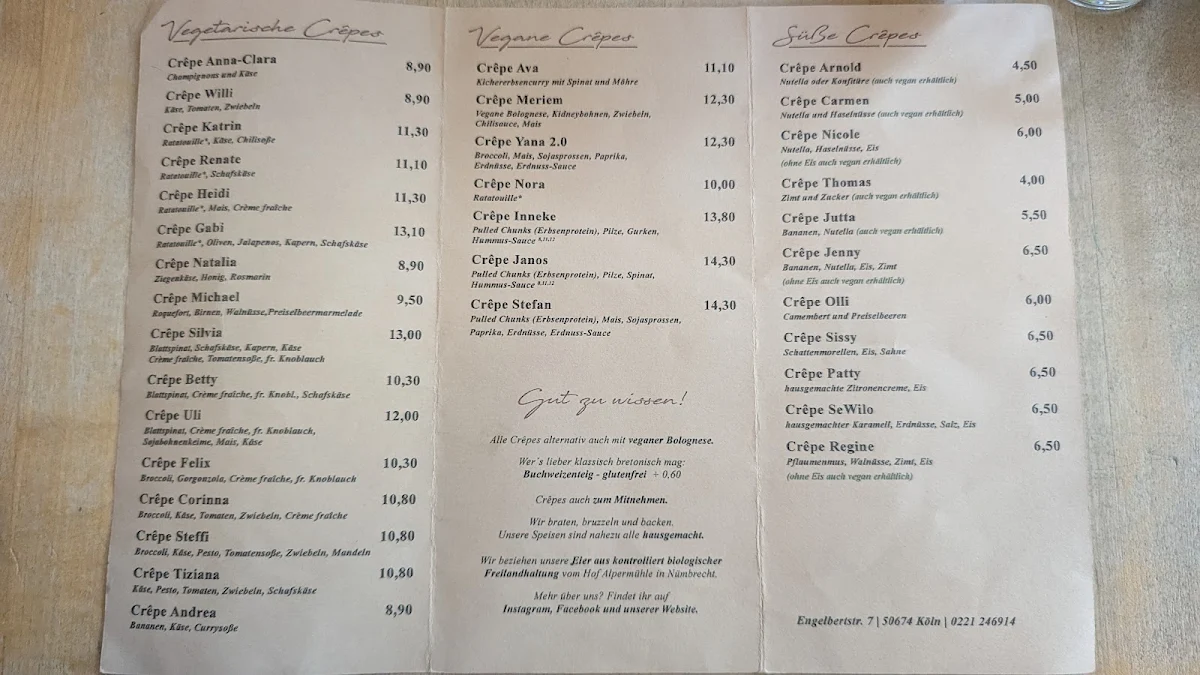 Vegetarische Crêpes
Crêpe Anna-Clara 8,90
Champignons und Käse
Crêpe Willi 8,90
Käse, Tomaten, Zwiebeln
Crêpe Katrin 11,30
Ratatouille*, Käse, Chilisoße
Crêpe Renate 11,10
Ratatouille*, Schafskäse
Crêpe Heidi 11,30
Ratatouille*, Mais, Crème fraîche
Crêpe Gabi 13,10
Ratatouille*, Oliven, Jalapenos, Kapern, Schafskäse
Crêpe Natalia 8,90
Ziegenkäse, Honig, Rosmarin
Crêpe Michael 9,50
Roquefort, Birnen, Walnüsse,Preiselbeermarmelade
Crêpe Silvia 13,00
Blattspinat, Schafskäse, Kapern, Käse
Crème fraîche, Tomatensoße, fr. Knoblauch
Crêpe Betty 10,30
Blattspinat, Crème fraîche, fr. Knobl., Schafskäse
Crêpe Uli 12,00
Blattspinat, Crème fraîche, fr. Knoblauch,
Sojabohnenkeime, Mais, Käse
Crêpe Felix 10,30
Broccoli, Gorgonzola, Crème fraîche, fr. Knoblauch
Crêpe Corinna 10,80
Broccoli, Käse, Tomaten, Zwiebeln, Crème fraîche
Crêpe Steffi 10,80
Broccoli, Käse, Pesto, Tomatensoße, Zwiebeln, Mandeln
Crêpe Tiziana 10,80
Käse, Pesto, Tomaten, Zwiebeln, Schafskäse
Crêpe Andrea 8,90
Bananen, Käse, Currysoße
Vegane Crêpes
Crêpe Ava 11,10
Kichererbsencurry mit Spinat und Möhre
Crêpe Meriem 12,30
Vegane Bolognese, Kidneybohnen, Zwiebeln,
Chilisauce, Mais
Crêpe Yana 2.0 12,30
Broccoli, Mais, Sojasprossen, Paprika,
Erdnüsse, Erdnuss-Sauce
Crêpe Nora 10,00
Ratatouille*
Crêpe Inneke 13,80
Pulled Chunks (Erbsenprotein), Pilze, Gurken,
Hummus-Sauce
Crêpe Janos 14,30
Pulled Chunks (Erbsenprotein), Pilze, Spinat,
Hummus-Sauce
Crêpe Stefan 14,30
Pulled Chunks (Erbsenprotein), Mais, Sojasprossen,
Paprika, Erdnüsse, Erdnuss-Sauce
Gut zu wissen!
Alle Crêpes alternativ auch mit veganer Bolognese.
Wer´s lieber klassisch bretonisch mag:
Buchweizenteig - glutenfrei + 0,60
Crêpes auch zum Mitnehmen.
Wir braten, bruzzeln und backen.
Unsere Speisen sind nahezu alle hausgemacht.
Wir beziehen unsere Eier aus kontrolliert biologischer
Freilandhaltung vom Hof Alpermühle in Nümbrecht.
Mehr über uns? Findet ihr auf
Instagram, Facebook und unserer Website.
Süße Crêpes
Crêpe Arnold 4,50
Nutella oder Konfitüre (auch vegan erhältlich)
Crêpe Carmen 5,00
Nutella und Haselnüsse (auch vegan erhältlich)
Crêpe Nicole 6,00
Nutella, Haselnüsse, Eis
(ohne Eis auch vegan erhältlich)
Crêpe Thomas 4,00
Zimt und Zucker (auch vegan erhältlich)
Crêpe Jutta 5,50
Bananen, Nutella (auch vegan erhältlich)
Crêpe Jenny 6,50
Bananen, Nutella, Eis, Zimt
(ohne Eis auch vegan erhältlich)
Crêpe Olli 6,00
Camembert und Preiselbeeren
Crêpe Sissy 6,50
Schattenmorellen, Eis, Sahne
Crêpe Patty 6,50
hausgemachte Zitronencreme, Eis
Crêpe SeWilo 6,50
hausgemachter Karamell, Erdnüsse, Salz, Eis
Crêpe Regine 6,50
Pflaumenmus, Walnüsse, Zimt, Eis
(ohne Eis auch vegan erhältlich)
Engelbertstr. 7 | 50674 Köln | 0221 246914